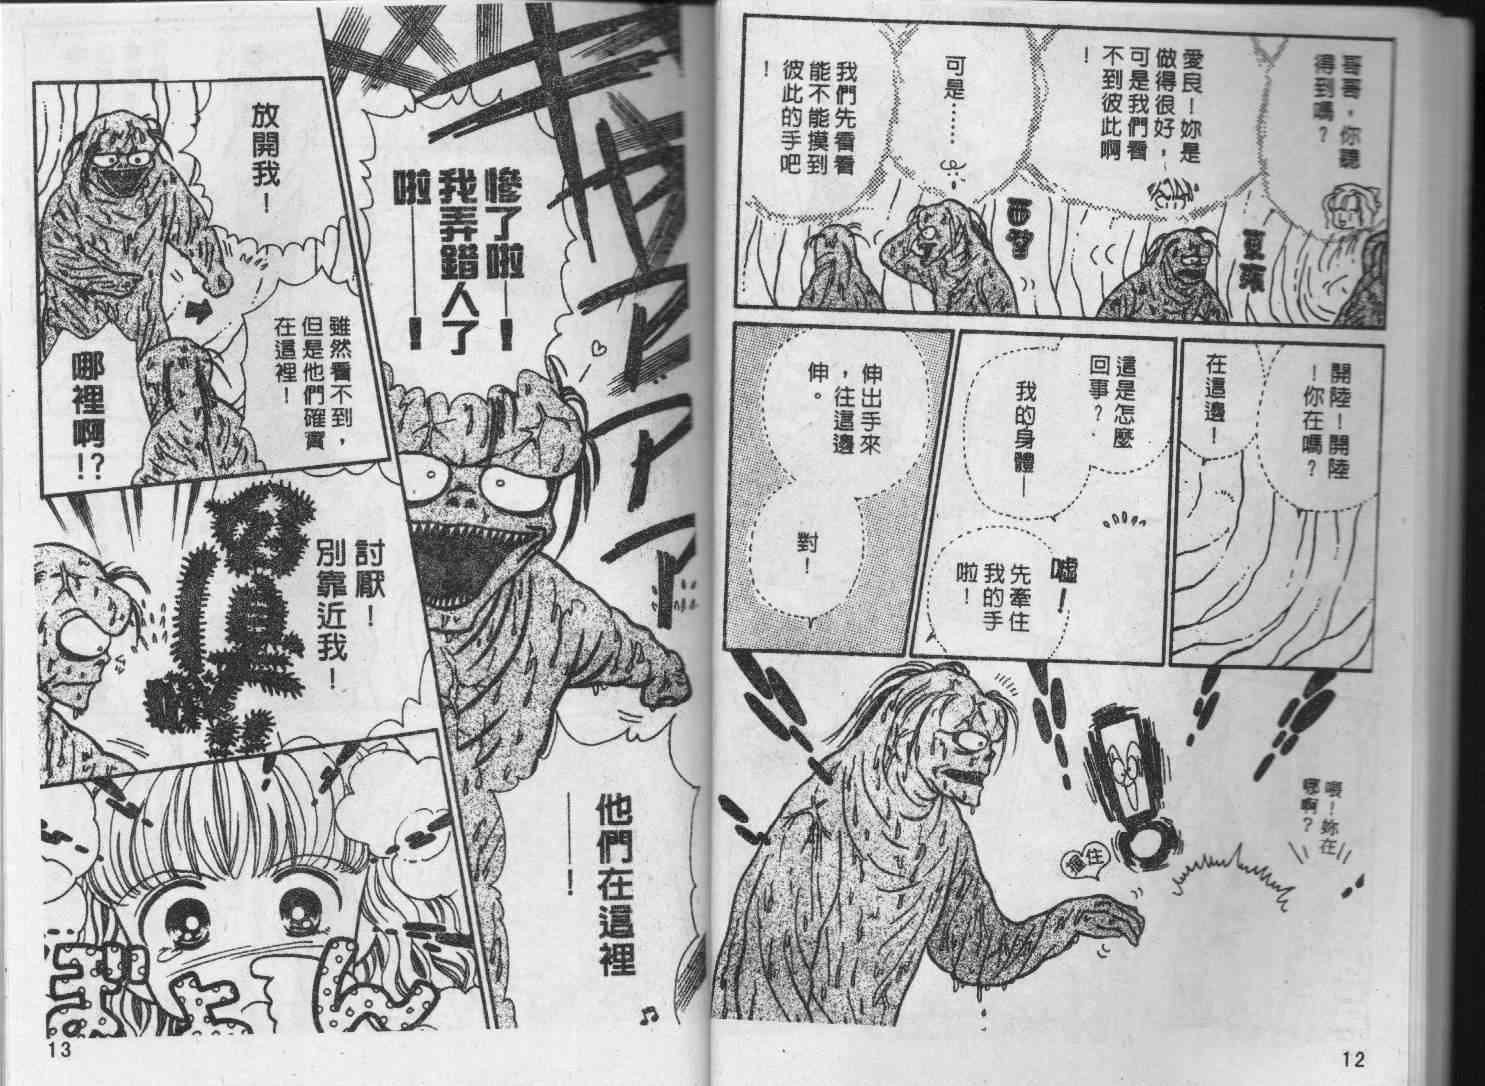 哥哥，你聽
得到嗎？
愛良！妳是
做得很好，
可是我們看
不到彼此啊
！
可是……
我們先看看
能不能摸到
彼此的手吧
！
開陸！開陸
！你在嗎？
在這邊！
這是怎麼
回事？
我的身體—
噓！
先牽住
我的手
啦！
伸出手來
，往這邊
伸。
對！
喂！妳在
哪啊？
12
慘了啦——！
我弄錯人了
啦——！
放開我！
雖然看不到，
但是他們確實
在這裡！
哪裡啊!?
討厭！
別靠近我！
他們在這裡
——！
13